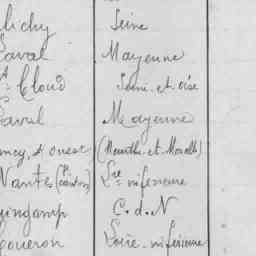 lichy Seine
Laval Mayenne
St Cloud Seine et oise
Laval Mayenne
ncy, & ouest (Meurthe et Moselle)
Nantes Lre inférieure
uingamp C. d. N
Coueron Loire inférieure